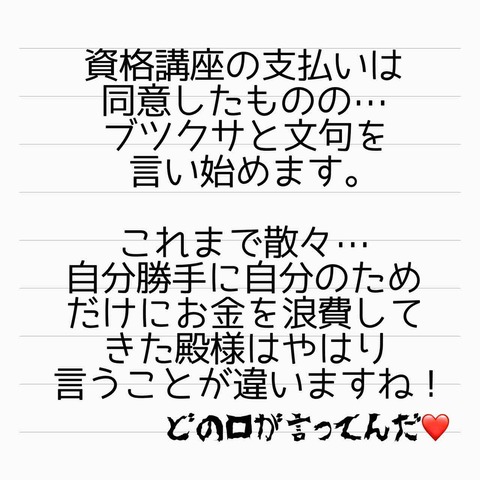 資格講座の支払いは
同意したものの…
ブツクサと文句を
言い始めます。
これまで散々…
自分勝手に自分のため
だけにお金を浪費して
きた殿様はやはり
言うことが違いますね！
どの口が言ってんだ❤️